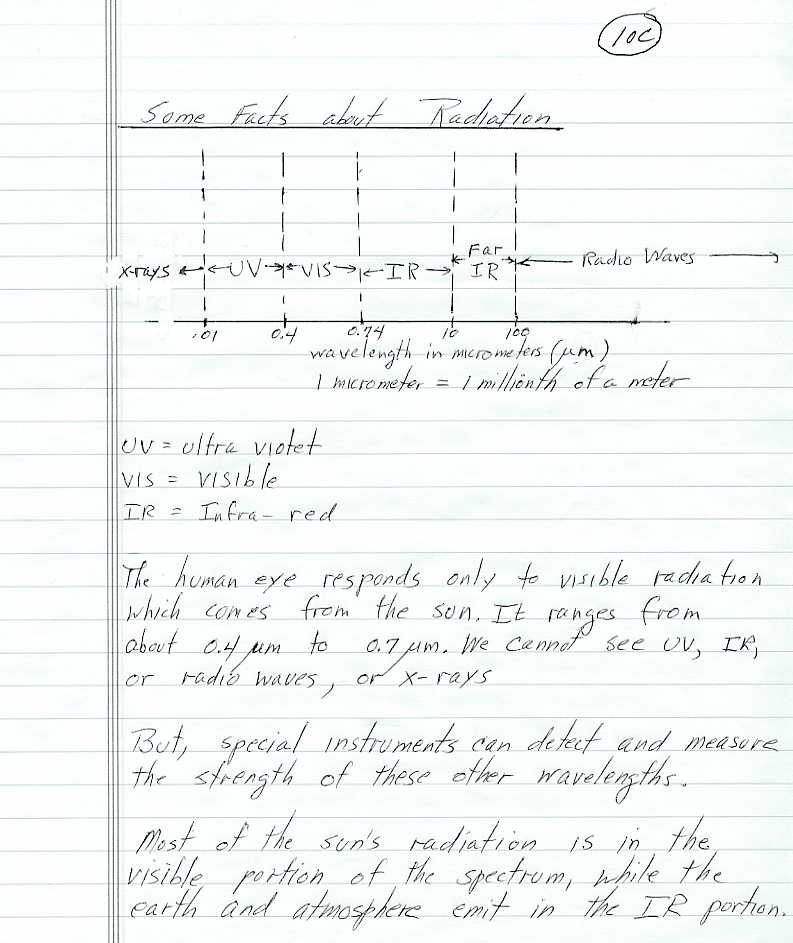 10C
Some Facts about Radiation
x-rays UV VIS IR Far IR Radio Waves
.01 0.4 0.74 10 100
wavelength in micrometers (μm)
1 micrometer = 1 millionth of a meter
UV = ultra violet
VIS = visible
IR = Infra-red
The human eye responds only to visible radiation
which comes from the sun. It ranges from
about 0.4 μm to 0.7 μm. We cannot see UV, IR,
or radio waves, or x-rays
But, special instruments can detect and measure
the strength of these other wavelengths.
Most of the sun's radiation is in the
visible portion of the spectrum, while the
earth and atmosphere emit in the IR portion.